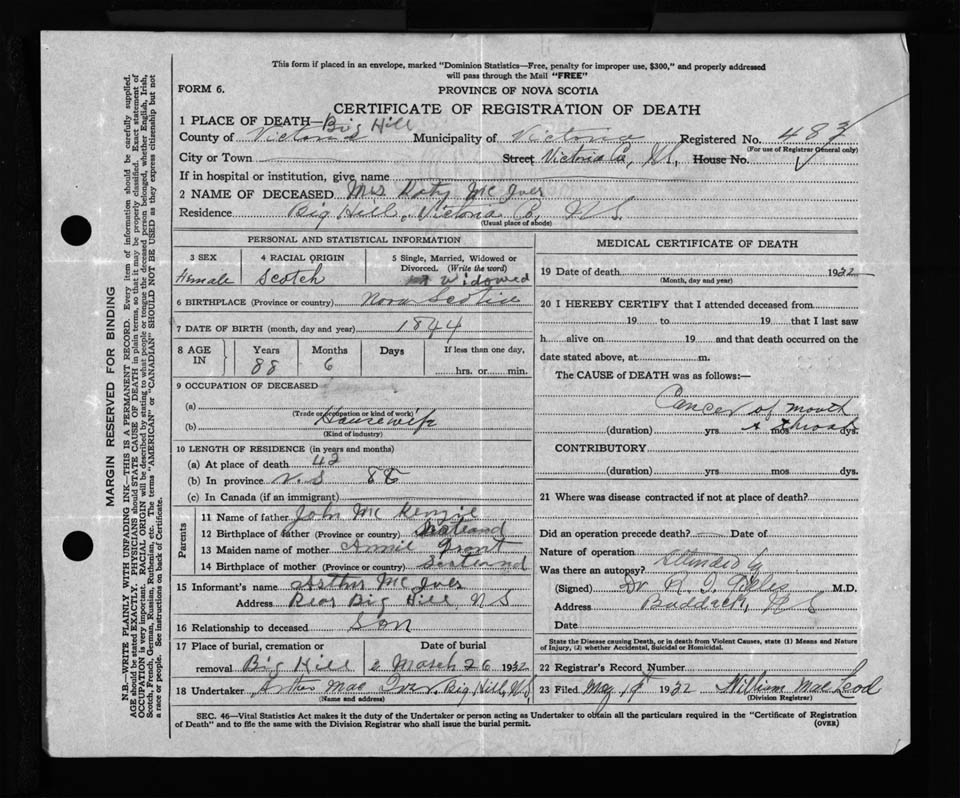 This form if placed in an envelope, marked "Dominion Statistics—Free, penalty for improper use, $300," and properly addressed
will pass through the Mail "FREE"
FORM 6.
PROVINCE OF NOVA SCOTIA
CERTIFICATE OF REGISTRATION OF DEATH
1 PLACE OF DEATH— Big Hill
County of Victoria Municipality of Victoria Registered No. 483
(For use of Registrar General only)
City or Town Street Victoria Co, NS, House No.
If in hospital or institution, give name
2 NAME OF DECEASED Mrs Katy Mc Iver
Residence Big Hill, Victoria Co, N S.
(Usual place of abode)
PERSONAL AND STATISTICAL INFORMATION
3 SEX 4 RACIAL ORIGIN 5 Single, Married, Widowed or
Divorced. (Write the word)
Female Scotch widowed
6 BIRTHPLACE (Province or country) Nova Scotia
7 DATE OF BIRTH (month, day and year) 1844
8 AGE IN Years Months Days If less than one day,
88 6 hrs. or min.
9 OCCUPATION OF DECEASED
(a)
(Trade or occupation or kind of work)
(b) Housewife
(Kind of industry)
10 LENGTH OF RESIDENCE (in years and months)
(a) At place of death 42
(b) In province N.S 88
(c) In Canada (if an immigrant)
Parents
11 Name of father John Mc Kenzie
12 Birthplace of father (Province or country) Scotland
13 Maiden name of mother Annie Grant
14 Birthplace of mother (Province or country) Scotland
15 Informant's name Arthur Mc Iver
Address Rear Big Hill, N S
16 Relationship to deceased Son
17 Place of burial, cremation or Date of burial
removal Big Hill March 26 1932
18 Undertaker Arthur Mac Iver Big Hill, N.S,
(Name and address)
MEDICAL CERTIFICATE OF DEATH
19 Date of death 1932
(Month, day and year)
20 I HEREBY CERTIFY that I attended deceased from
19 to 19 that I last saw
h alive on 19 and that death occurred on the
date stated above, at m.
The CAUSE of DEATH was as follows:—
Cancer of mouth
& throat
(duration) yrs mos dys.
CONTRIBUTORY
(duration) yrs mos dys.
21 Where was disease contracted if not at place of death?
Did an operation precede death? Date of
Nature of operation
Was there an autopsy? Attended by
(Signed) Dr M.D.
Address Baddeck, N S
Date
State the Disease causing Death, or in death from Violent Causes, state (1) Means and Nature
of Injury, (2) whether Accidental, Suicidal or Homicidal.
22 Registrar's Record Number
23 Filed May 1932 William Mac Leod
(Division Registrar)
SEC. 46—Vital Statistics Act makes it the duty of the Undertaker or person acting as Undertaker to obtain all the particulars required in the "Certificate of Registration
of Death" and to file the same with the Division Registrar who shall issue the burial permit.
(OVER)
MARGIN RESERVED FOR BINDING
N.B.—WRITE PLAINLY WITH UNFADING INK—THIS IS A PERMANENT RECORD. Every item of information should be carefully supplied.
AGE should be stated EXACTLY. PHYSICIANS should STATE CAUSE OF DEATH in plain terms, so that it may be properly classified. Exact statement of
OCCUPATION is very important. RACIAL ORIGIN will be described by stating to what people or tongue the deceased person belonged, whether English, Irish,
Scotch, French, German, Russian, Ruthenian, etc. The terms "AMERICAN" or "CANADIAN" SHOULD NOT BE USED as they express citizenship but not
a race or people. See instructions on back of Certificate.